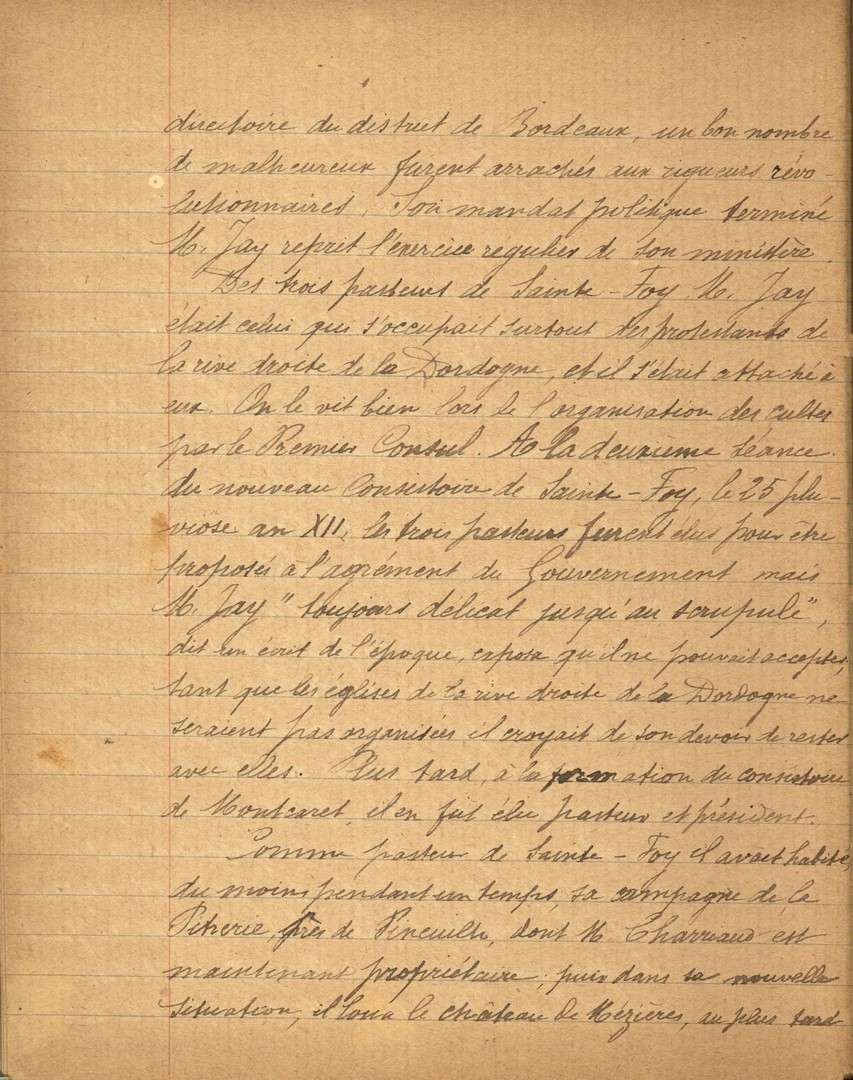 directoire du district de Bordeaux, un bon nombre
de malheureux furent arrachés aux rigueurs révo-
lutionnaires. Son mandat politique terminé
M. Jay reprit l'exercice regulier de son ministère.
Des trois pasteurs de Sainte-Foy, M. Jay
était celui qui s'occupait surtout des protestants de
la rive droite de la Dordogne, et il s'était attaché à
eux. On le vit bien lors de l'organisation des cultes
par le Premier Consul. A la deuxième séance
du nouveau Consistoire de Sainte-Foy, le 25 plu-
viôse an XII, les trois pasteurs furent élus pour être
proposés à l'agrément du Gouvernement mais
M. Jay "toujours délicat jusqu'au scrupule",
dit un écrit de l'époque, exposa qu'il ne pouvait accepter,
tant que les églises de la rive droite de la Dordogne ne
seraient pas organisées il croyait de son devoir de rester
avec elles. Plus tard, à la formation du consistoire
de Montcaret, il en fut élu pasteur et président.
Comme pasteur de Sainte-Foy il avait habité,
du moins pendant un temps, sa campagne de la
près de Pineuilh, dont M. Charriaud est
maintenant propriétaire; puis dans sa nouvelle
situation, il loua le château de Mézières, au plus tard